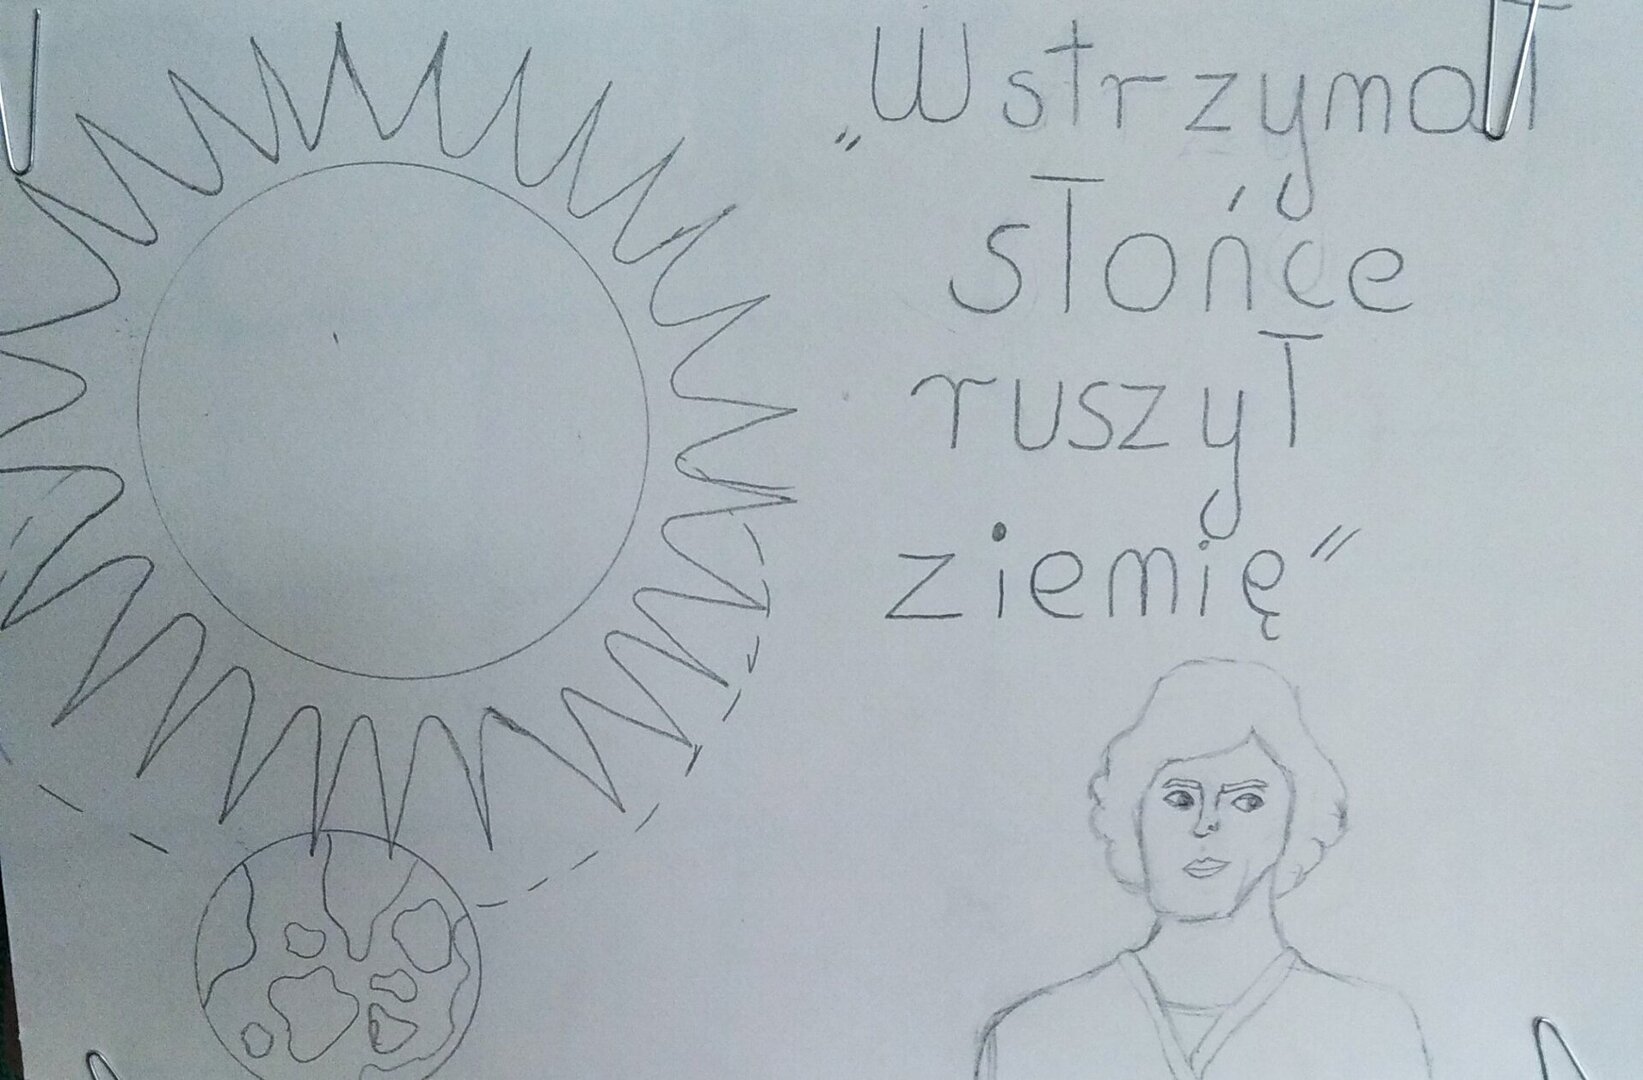 „Wstrzymał
słońce
ruszył
ziemię”